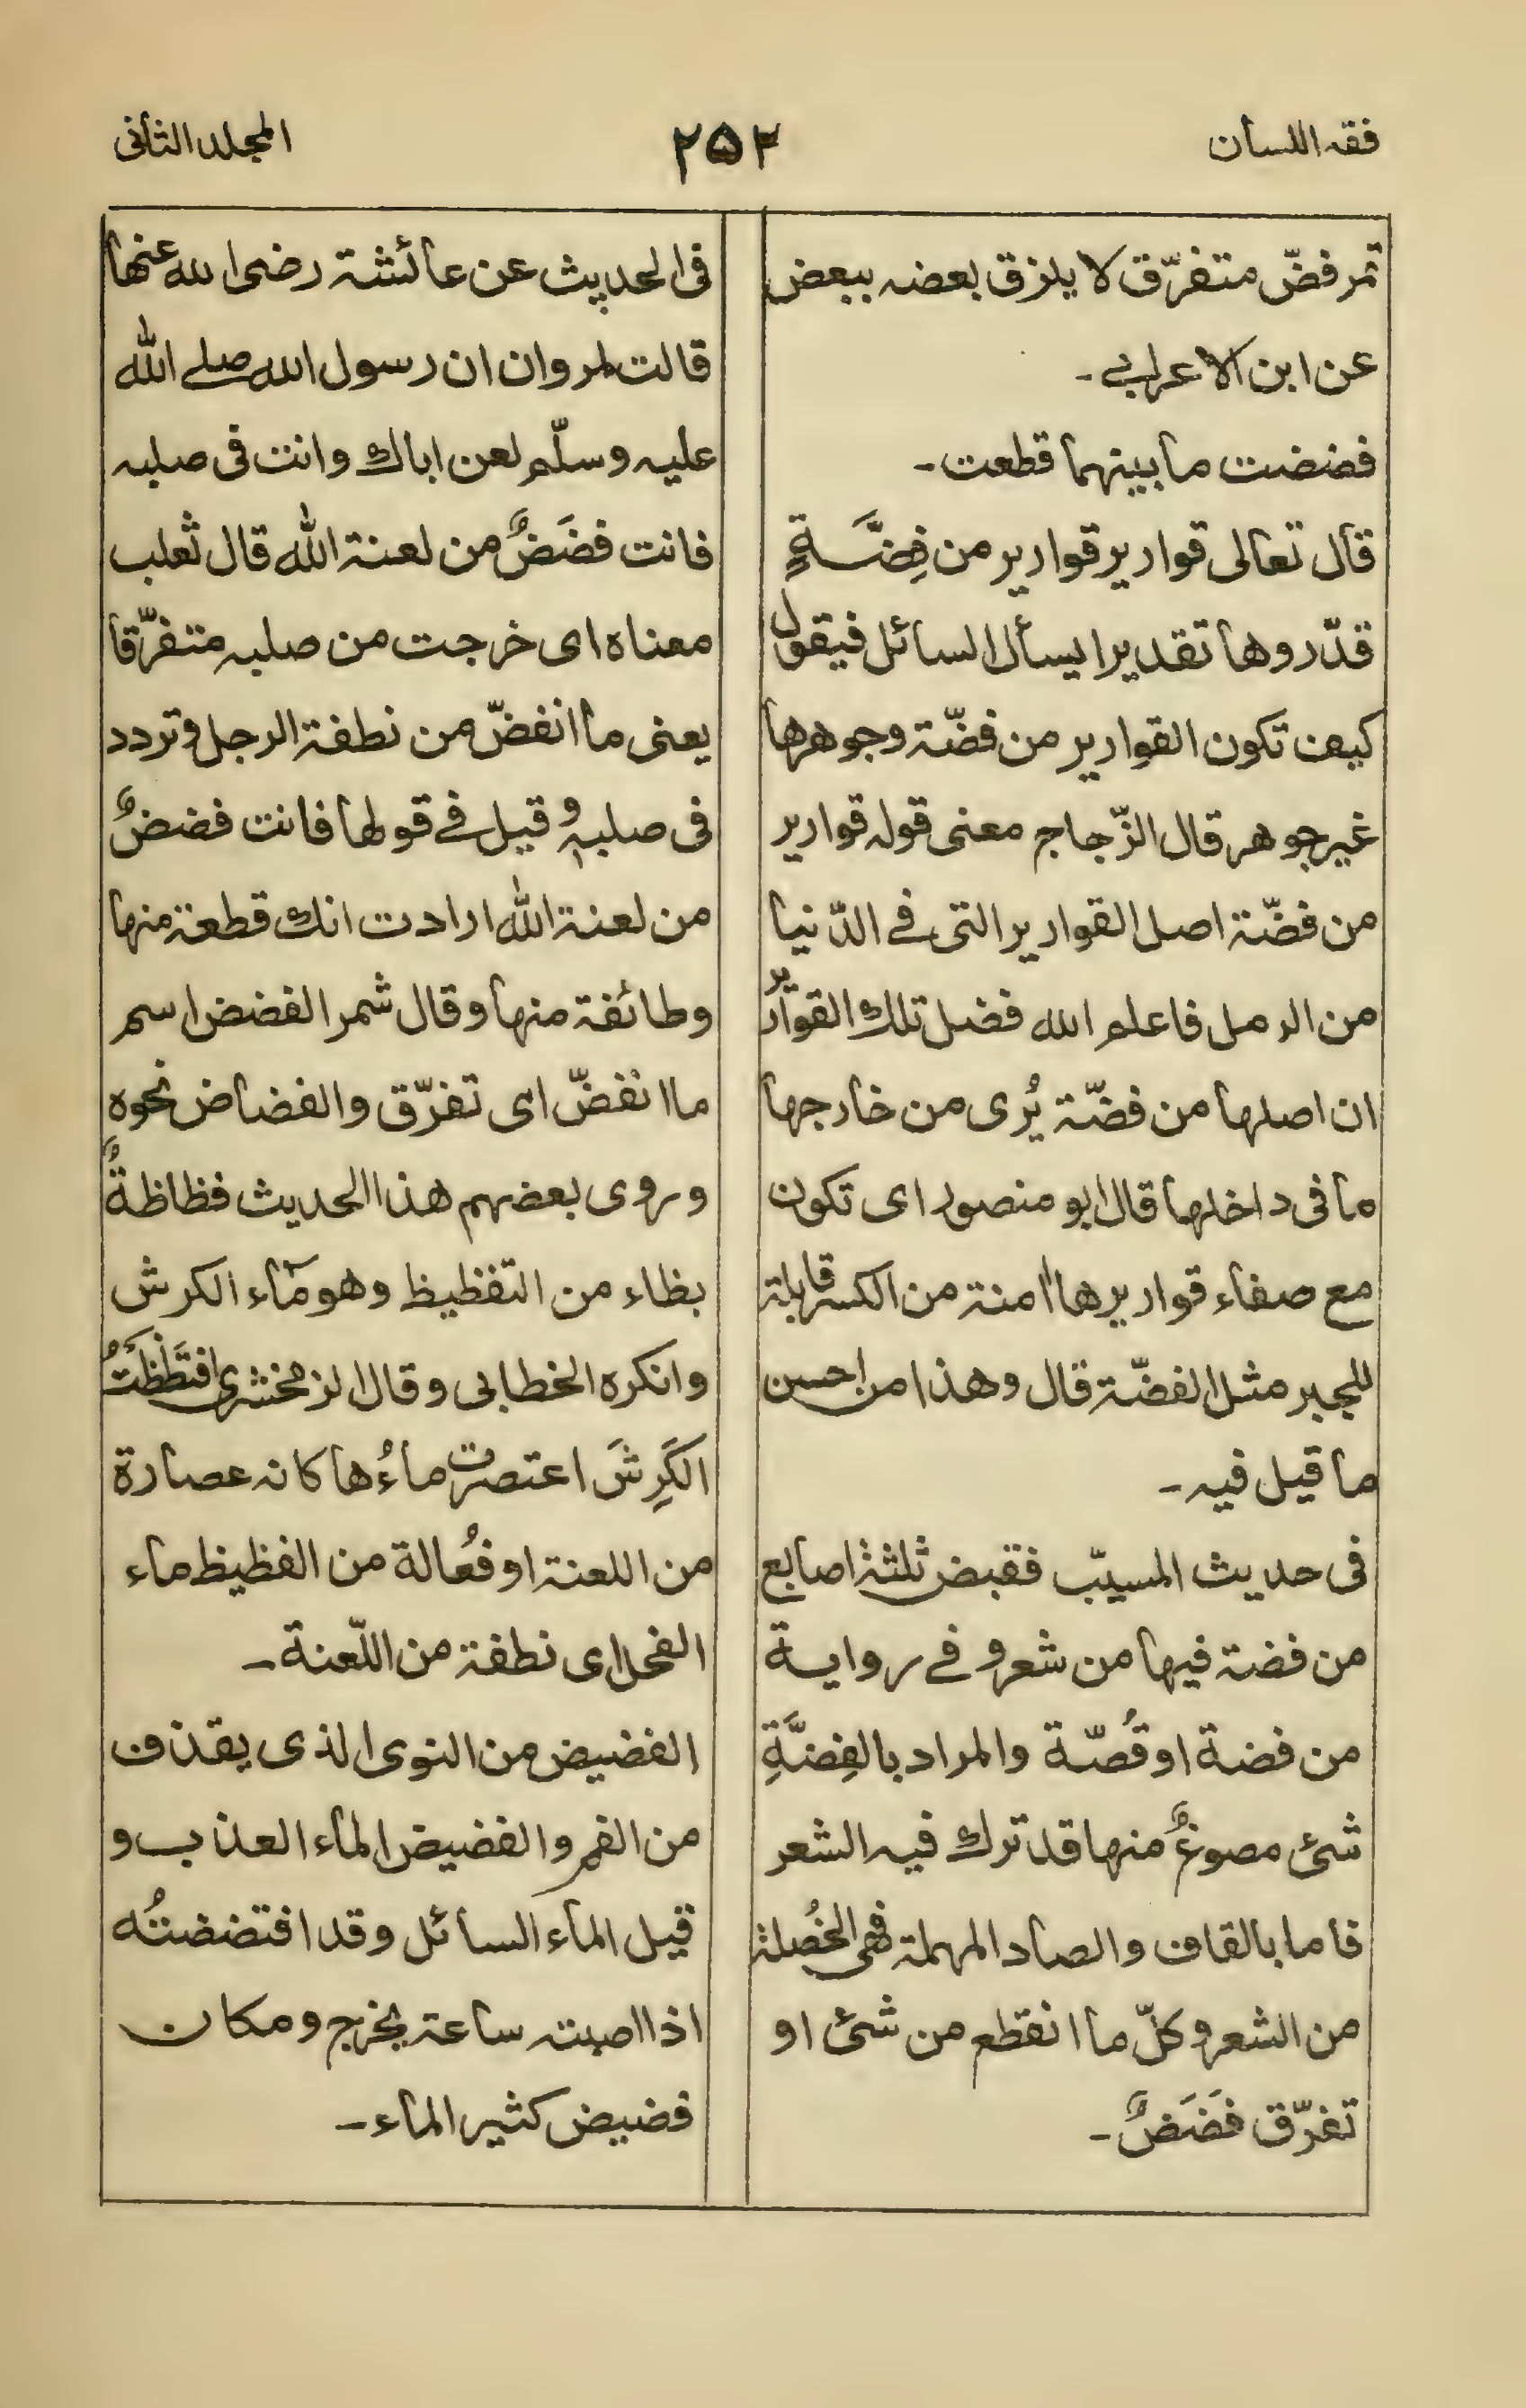 فقہ اللسان
۲۵۲
المجلد الثانی
تمر فضّ متفرّق لا یلزق بعضہ ببعض
عن ابن الاعرابے ۔
فضضت ما بینہما قطعت ۔
قال تعالی قواریر قواریر من فِضَّـةٍ
قدّروها تقدیرا یسأل السائل فیقول
کیف تکون القواریر من فضّۃ وجوهرها
غیر جوهر قال الزّجاج معنی قولہ قواریر
من فضّۃ اصل القواریر التی فے الدّنیا
من الرمل فاعلم اللہ فضل تلك القواریر
ان اصلها من فضّۃ یُرٰی من خارجها
ما فی داخلها قال ابو منصور ای تکون
مع صفاء قواریرها اٰمنۃ من الکسر قابلۃ
للجبر مثل الفضّۃ قال وهذا من احسن
ما قیل فیہ ۔
فی حدیث المسیّب فقبض ثلثۃ اصابع
من فضۃ فیها من شعر و فے روایـة
من فضة او قُصّـة والمراد بالفِضَّةِ
شئ مصوغٌ منها قد ترك فیہ الشعر
فاما بالقاف والصاد المهملۃ فهی الخُصلۃ
من الشعر و کلّ ما انقطع من شئ او
تفرّق فَضَضٌ ۔
فی الحدیث عن عائشۃ رضی اللہ عنها
قالت لمروان ان رسول اللہ صلے اللہ
علیہ وسلّم لعن اباك وانت فی صلبہ
فانت فضَضٌ من لعنۃ اللہ قال ثعلب
معناہ ای خرجت من صلبہ متفرّقا
یعنی ما انفضّ من نطفۃ الرجل و تردد
فی صلبہ و قیل فے قولها فانت فضضٌ
من لعنۃ اللہ ارادت انك قطعۃ منها
وطائفۃ منها و قال شمر الفضض اسم
ما انفضّ ای تفرّق والفضاض نحوہ
وروی بعضهم هذا الحدیث فظاظةٌ
بظاء من التفظیظ وهو ماء الکرش
وانکرہ الخطابی وقال الزمخشری افتظَظتُ
الکَرِشَ اعتصرت ماءُها کانہ عصارة
من اللعنۃ او فُعالة من الفظیظ ماء
الفحل ای نطفۃ من اللّعنة ۔
الفضیض من النوی الذی یقذف
من الفم والفضیض الماء العذب و
قیل الماء السائل وقد افتضضتُه
اذا اصبتہ ساعۃ یخرج و مکان
فضیض کثیر الماء ۔